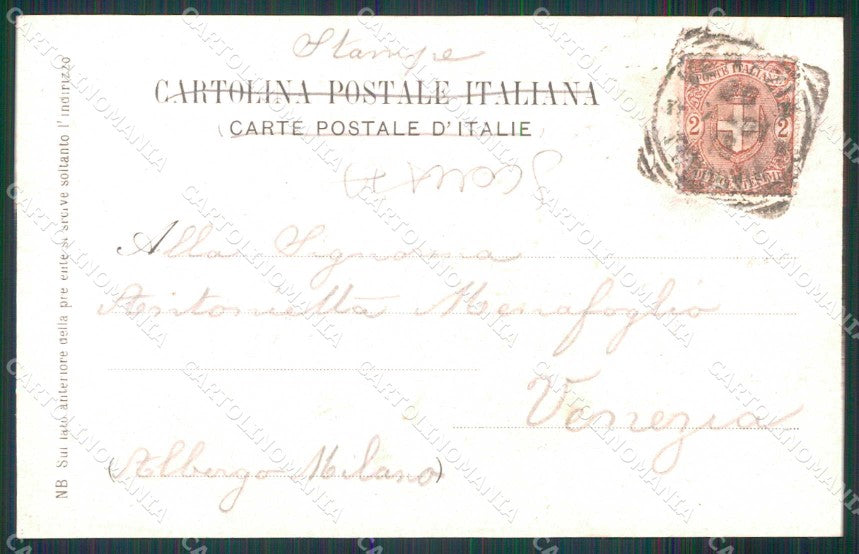 Stampe
CARTOLINA POSTALE ITALIANA
(CARTE POSTALE D'ITALIE)
POSTE ITALIANE
2 2
Alla Signora
Antonietta Menafoglio
Venezia
(Albergo Milano)
NB Sul lato anteriore della pre ente si scrive soltanto l'indirizzo
CARTOLINOMANIA